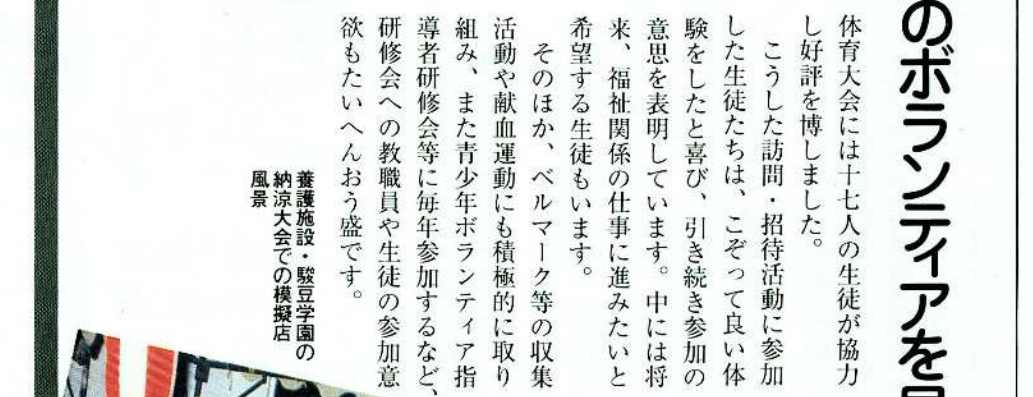 のボランティアを
体育大会には十七人の生徒が協力
し好評を博しました。
こうした訪問・招待活動に参加
した生徒たちは、こぞって良い体
験をしたと喜び、引き続き参加の
意思を表明しています。中には将
来、福祉関係の仕事に進みたいと
希望する生徒もいます。
そのほか、ベルマーク等の収集
活動や献血運動にも積極的に取り
組み、また青少年ボランティア指
導者研修会等に毎年参加するなど、
研修会への教職員や生徒の参加意
欲もたいへんおう盛です。
養護施設・駿豆学園の
納涼大会での模擬店
風景